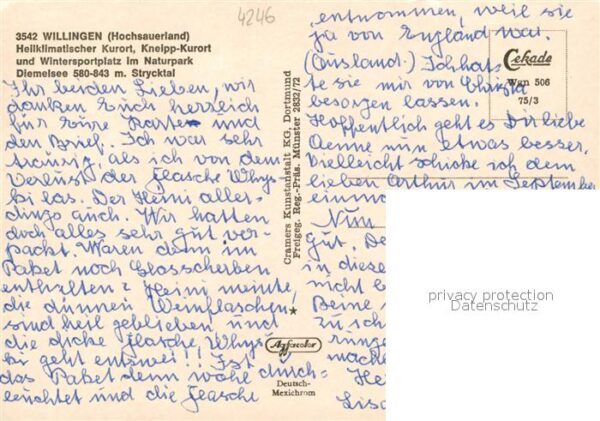 4246
3542 WILLINGEN (Hochsauerland)
Heilklimatischer Kurort, Kneipp-Kurort
und Wintersportplatz im Naturpark
Diemelsee 580-843 m. Strycktal
Ihr beiden Lieben, wir
danken Euch herzlich
für Eure Karten und
den Brief. Ich war sehr
traurig, als ich von dem
Verlust der Flasche Whys-
ki las. Der Heini aller-
dings auch. Wir hatten
doch alles sehr gut ver-
packt. Waren denn im
Paket noch Glasscherben
enthalten? Heini meinte,
die dünnen Weinflaschen
sind heil geblieben und
die dicke Flasche, Whys-
ki geht entzwei!! Ist
das Paket denn wohl durch-
leuchtet und die Flasche
Cramers Kunstanstalt KG, Dortmund
Freigeg. Reg.-Präs. Münster 2832/72
Agfacolor
Deutsch-
Mexichrom
entnommen, weil sie
ja von England war.
(Ausland.) Ich hat-
te sie mir von Christa
besorgen lassen.
Hoffentlich geht es Dir liebe
Aenne nun etwas besser.
Vielleicht schicke ich dem
lieben Arthur im September
Nun
gut. De
in diese
nicht b
Beine
zu sch
runge
mache
He
Cekade
Wgn 506
75/3
privacy protection
Datenschutz